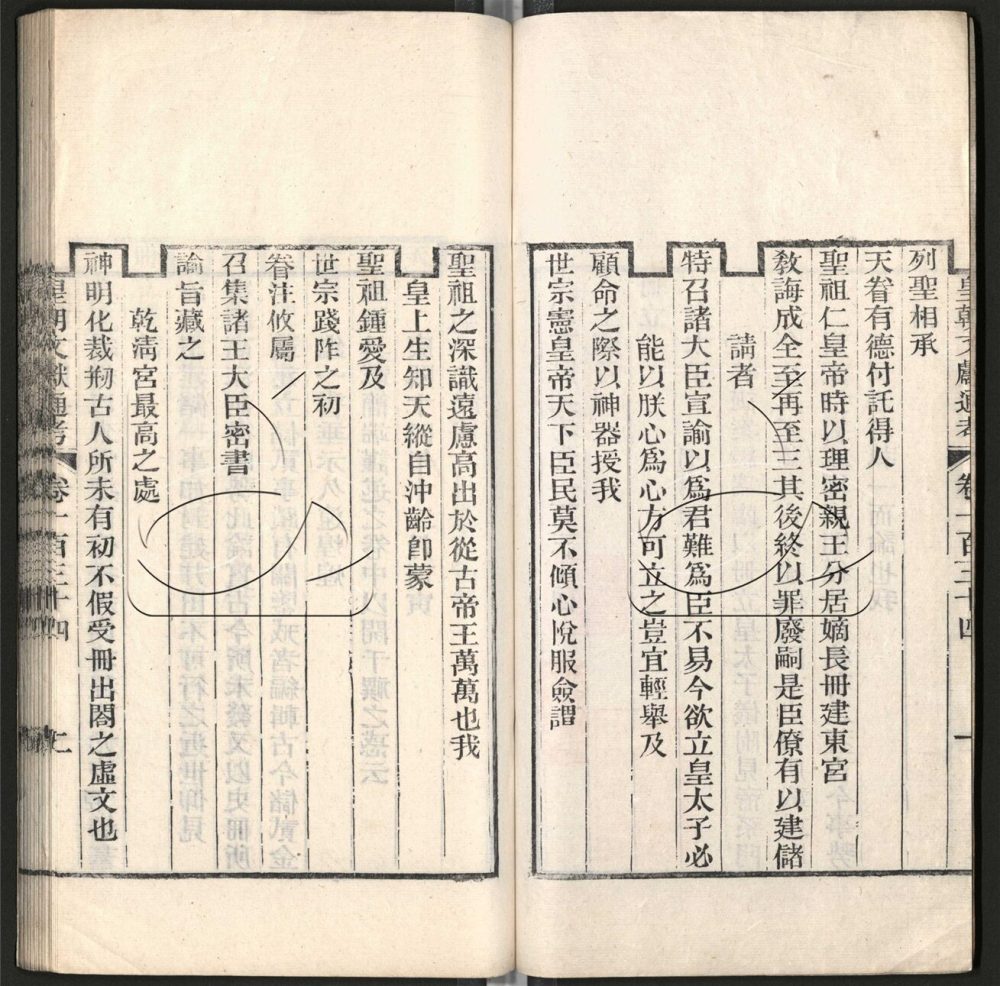 皇朝文獻通考 卷一百三十四 一
列聖相承
天眷有德付託得人
聖祖仁皇帝時以理密親王分居嫡長冊建東宮
敎誨成全至再至三其後終以罪廢嗣是臣僚有以建儲
請者
特召諸大臣宣諭以爲君難爲臣不易今欲立皇太子必
能以朕心爲心方可立之豈宜輕舉及
顧命之際以神器授我
世宗憲皇帝天下臣民莫不傾心悅服僉謂
聖祖之深識遠慮高出於從古帝王萬萬也我
皇上生知天縱自沖齡卽蒙
聖祖鍾愛及
世宗踐阼之初
眷注攸屬
召集諸王大臣密書
諭旨藏之
乾淸宮最高之處
神明化裁剏古人所未有初不假受冊出閣之虛文也
皇朝文獻通考 卷一百三十四